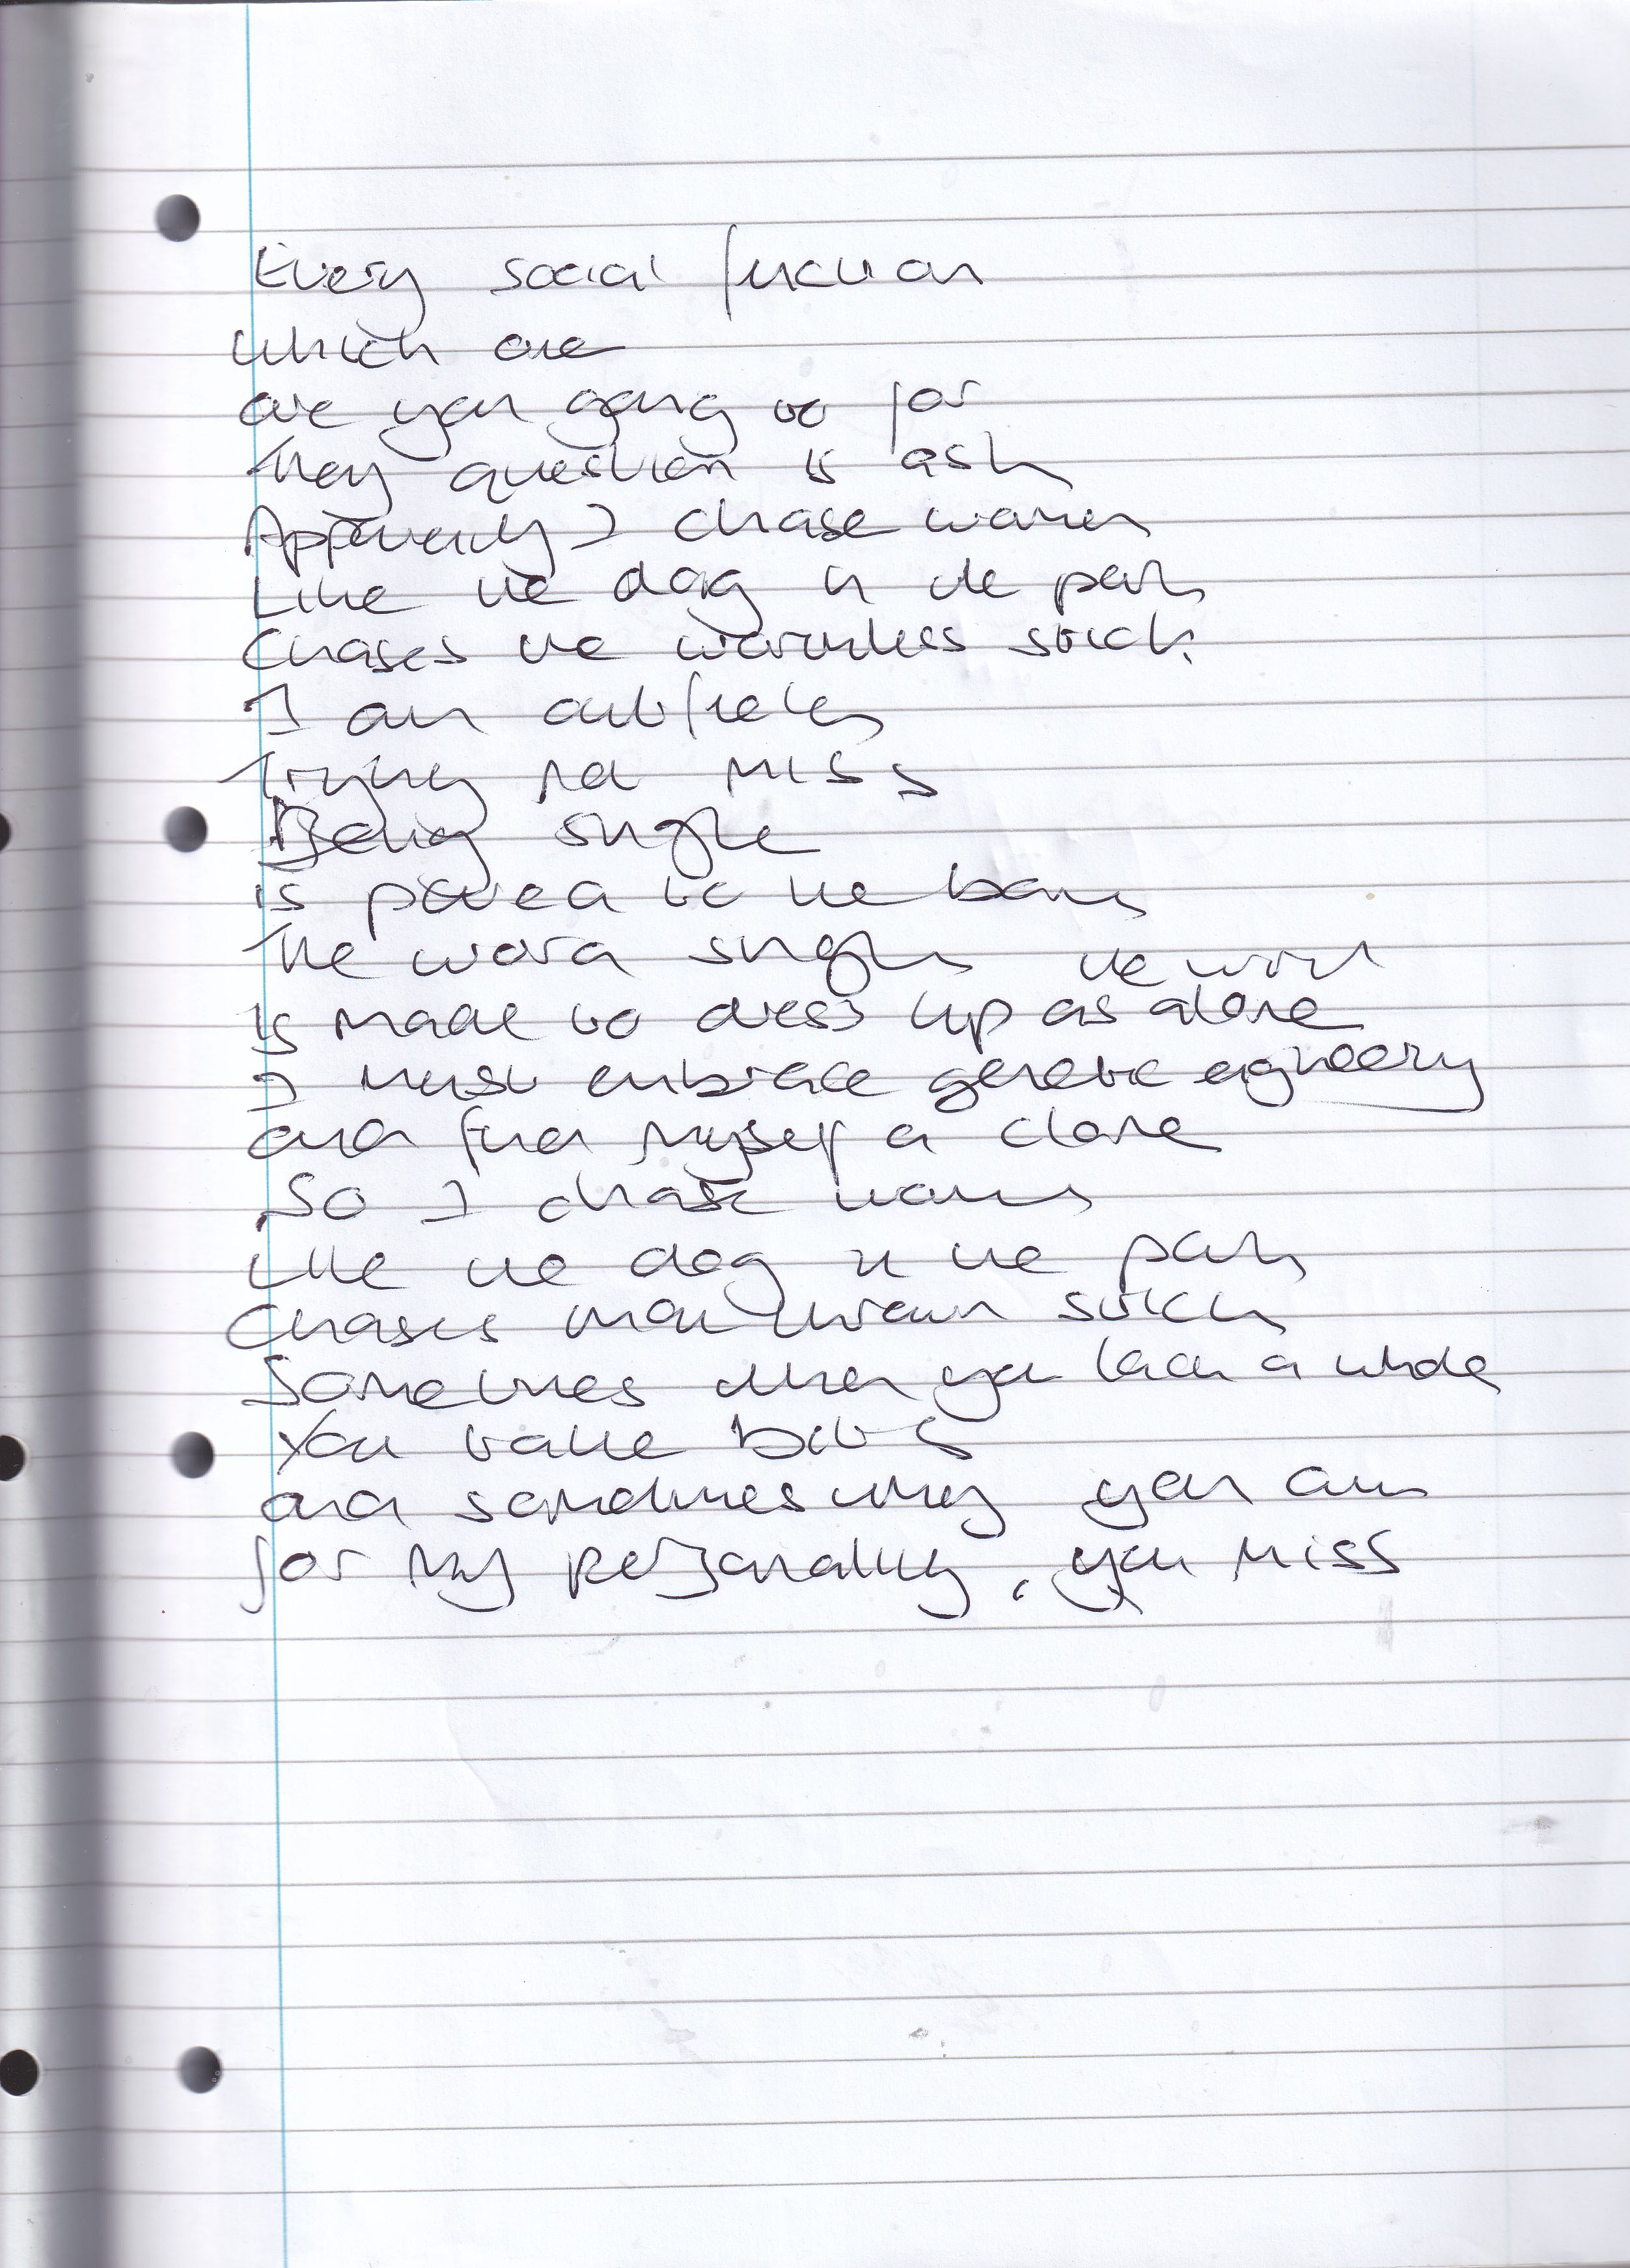 Every social function
which one
are you going to for
They question is ask
Apparently I chase women
Like the dog in the park
Chases the worthless stick
I am outfielder
Trying not miss
Being single
is pared to the bone
The word single the word
is made to dress up as alone
I must embrace genetic engineering
and find myself a clone
So I chase women
like the dog in the park
Chases thrown stick
Sometimes when you lack a whole
You value bits
and sometimes why you aim
for my personality, you miss